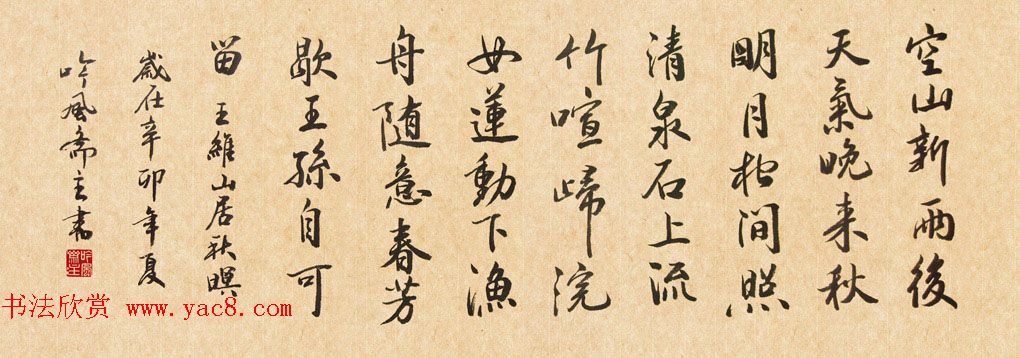 空山新雨後
天氣晚来秋
明月松間照
清泉石上流
竹喧歸浣
女蓮動下漁
舟随意春芳
歇王孫自可
留 王維山居秋暝
歲在辛卯年夏
吟風斋主書
书法欣赏 www.yac8.com